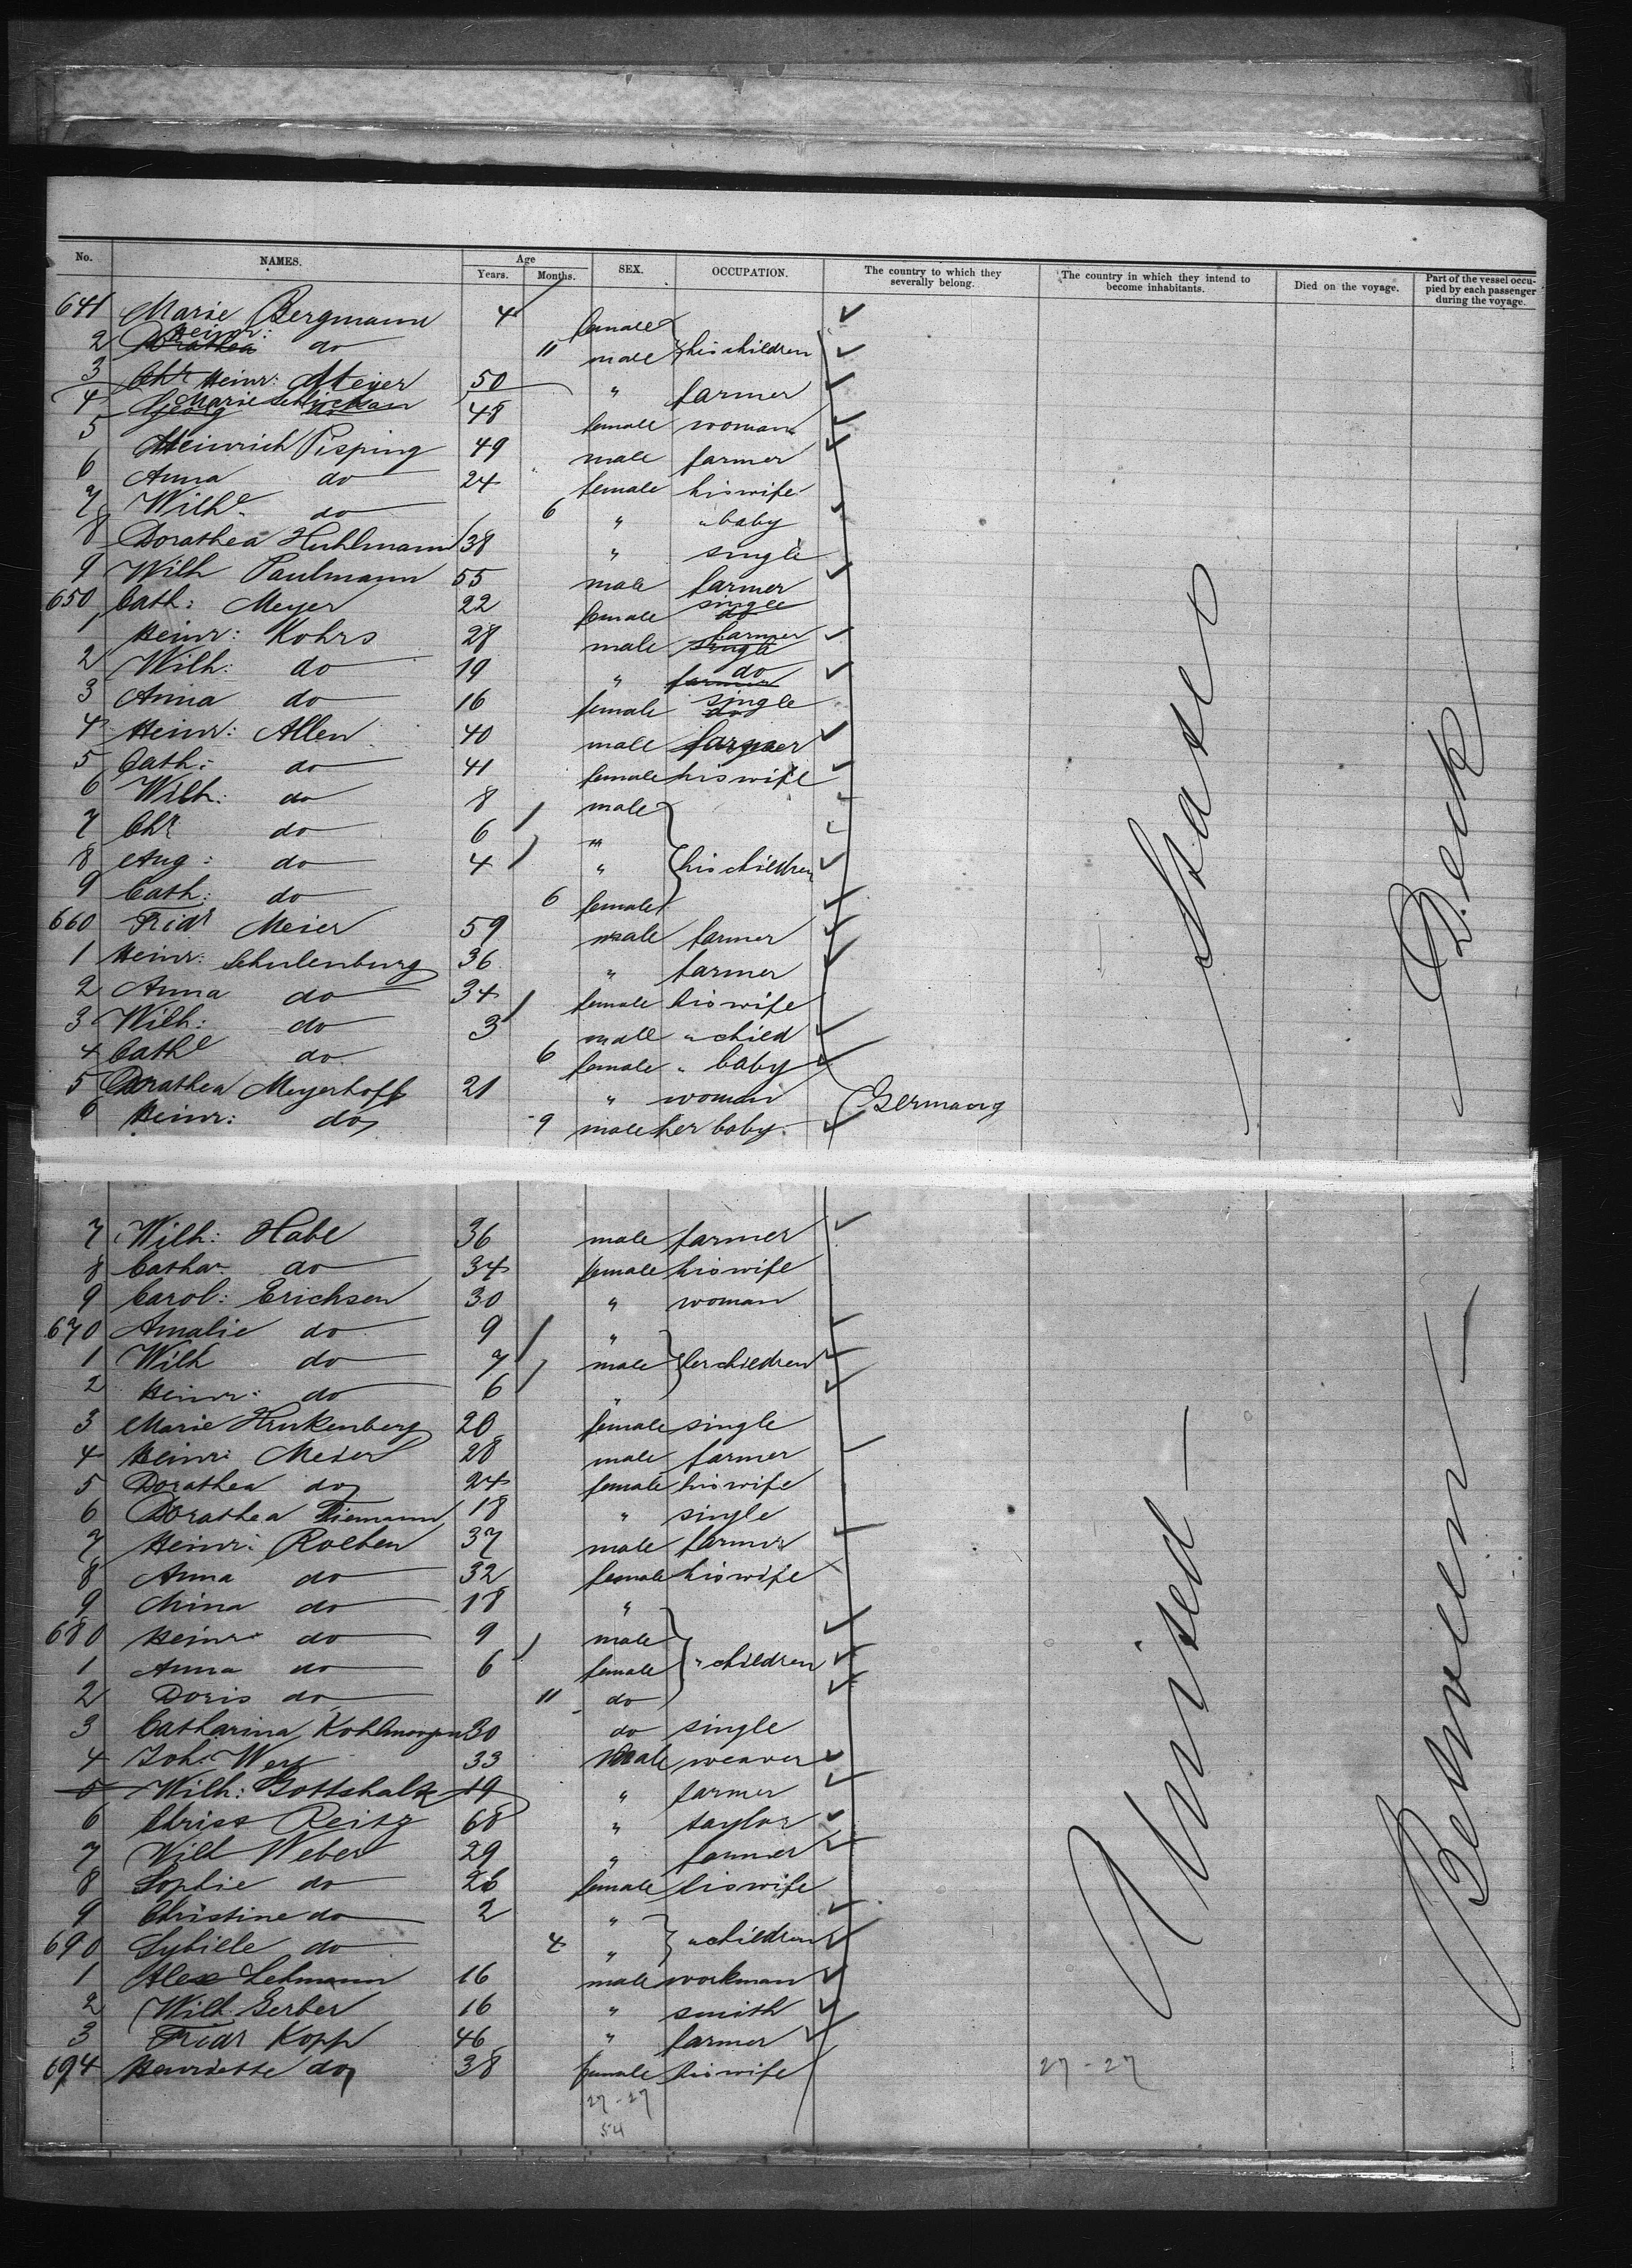 No. NAMES. Age Years. Months. SEX. OCCUPATION. The country to which they severally belong. The country in which they intend to become inhabitants. Died on the voyage. Part of the vessel occupied by each passenger during the voyage.
641 Marie Bergmann 4 female
2 Heinr: do 11 male his children
3 Chr Heinr: Meyer 50 " farmer
4 Marie 48 female woman
5 Heinrich Pisping 49 male farmer
6 Anna do 24 female his wife
7 Wilhe do 6 " " baby
8 Dorathea Huhlmann 38 " single
9 Wilh Paulmann 55 male farmer
650 Cath: Meyer 22 female single
1 Heinr: Kohrs 28 male farmer
2 Wilh: do 19 " do
3 Anna do 16 female single
4 Heinr: Allen 40 male farmer
5 Cath: do 41 female his wife
6 Wilh: do 8 male
7 Chr do 6 "
8 Aug: do 4 " his children
9 Cath: do 6 female
660 Fridr Meier 59 male farmer
1 Heinr: Schulenburg 36 " farmer
2 Anna do 34 female his wife
3 Wilh: do 3 male " child
4 Cathe do 6 female " baby
5 Dorathea Meyerhoff 21 " woman Germany
6 Heinr: do 9 male her baby
7 Wilh: Habe 36 male farmer
8 Cathar do 34 female his wife
9 Carol: Erichsen 30 " woman
670 Amalie do 9 "
1 Wilh do 7 male her children
2 Heinr: do 6 "
3 Marie Hunkenberg 20 female single
4 Heinr: Meier 28 male farmer
5 Dorathea do 24 female his wife
6 Dorathea Tiemann 18 " single
7 Heinr: Rolben 37 male farmer
8 Anna do 32 female his wife
9 Mina do 18 "
680 Heinr do 9 male
1 Anna do 6 female " children
2 Doris do 11 do
3 Catharina Kohlmorgen 30 do single
4 Joh. Wey 33 male weaver
5 Wilh: Gottshalk 19 " farmer
6 Christ Reitz 68 " taylor
7 Wilh Weber 29 " farmer
8 Sophie do 26 female his wife
9 Christine do 2 "
690 Sybille do 4 " " children
1 Alex Lehmann 16 male workman
2 Wilh. Gerber 16 " smith
3 Fridr Kopp 46 " farmer
694 Henriette do 38 female his wife
27-27
54
27-27
United States
Between Deck